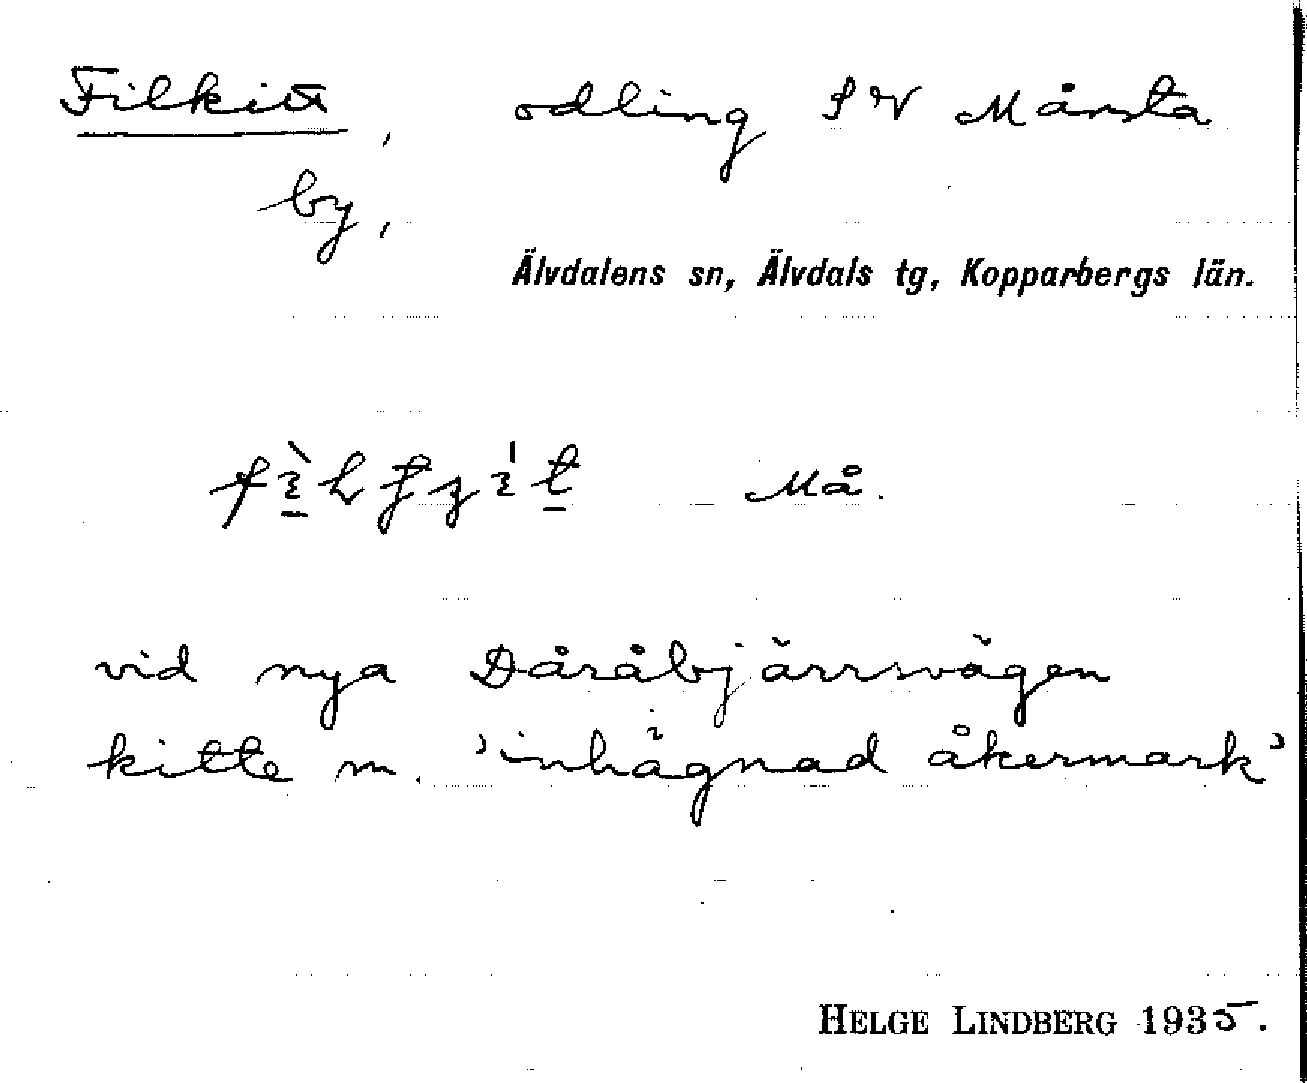 Filkitt, odling SV Månsta
by,
Älvdalens sn, Älvdals tg, Kopparbergs län.
Må.
vid nya Dåråbjärrsvägen
kitte m. 'inhägnad åkermark'
HELGE LINDBERG 1935.